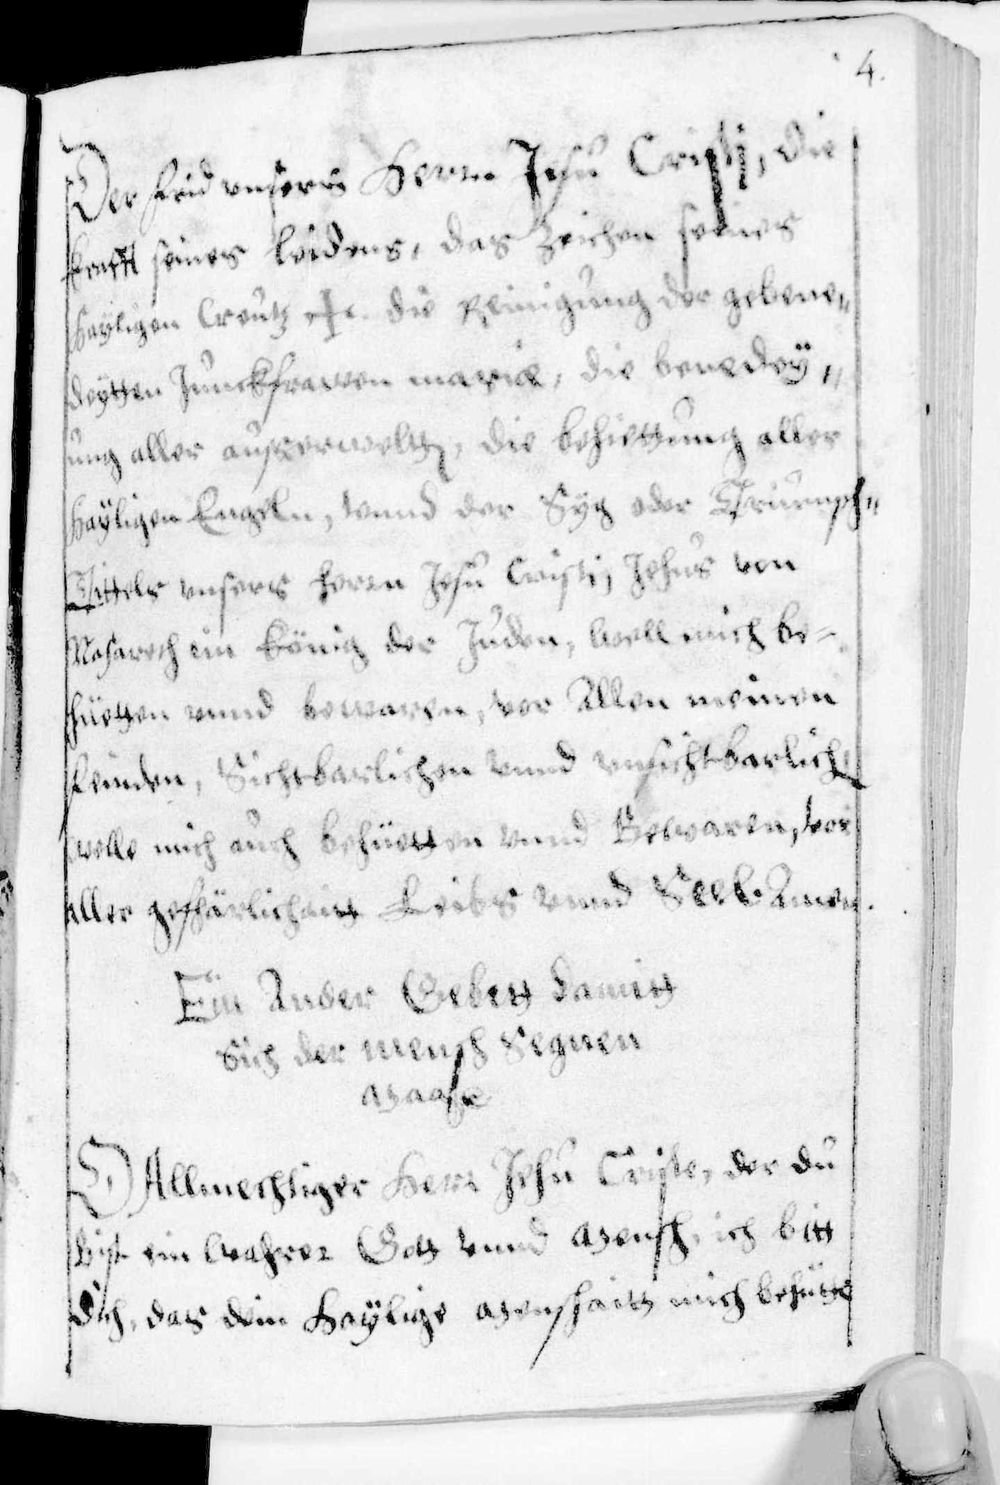 4.
Der frid vnsers Herrn Jesu Cristj, die
krafft seines leidens, das Zeichen seines
hayligen Creutz ✝. die Reinigung der gebene„
deytten Junckfrawen mariæ, die benedey„
ung aller ausserwelth, die behiettung aller
hayligen Engeln, vnnd der Syg oder Triumph„
Tittels vnsers herrn Jesu Cristi, Jesus von
Nasareth ein König der Juden, well mich be„
hüetten vnnd bewaren, vor Allen meinen
feinden, Sichtbarlichen vnnd vnsichtbarlich,
wolle mich auch behüetten vnnd Bewaren, vor
aller gefhärlichaitt Leibs vnnd Seel. Amen.
Ein Ander Gebett damitt
Sich der mensch Segnen
magse
O Allmechtiger Herr Jesu Criste, der du
bist ein wahrer Gott vnnd mensch, ich bitt
dich, das dein Haylige menschaitt mich behütte